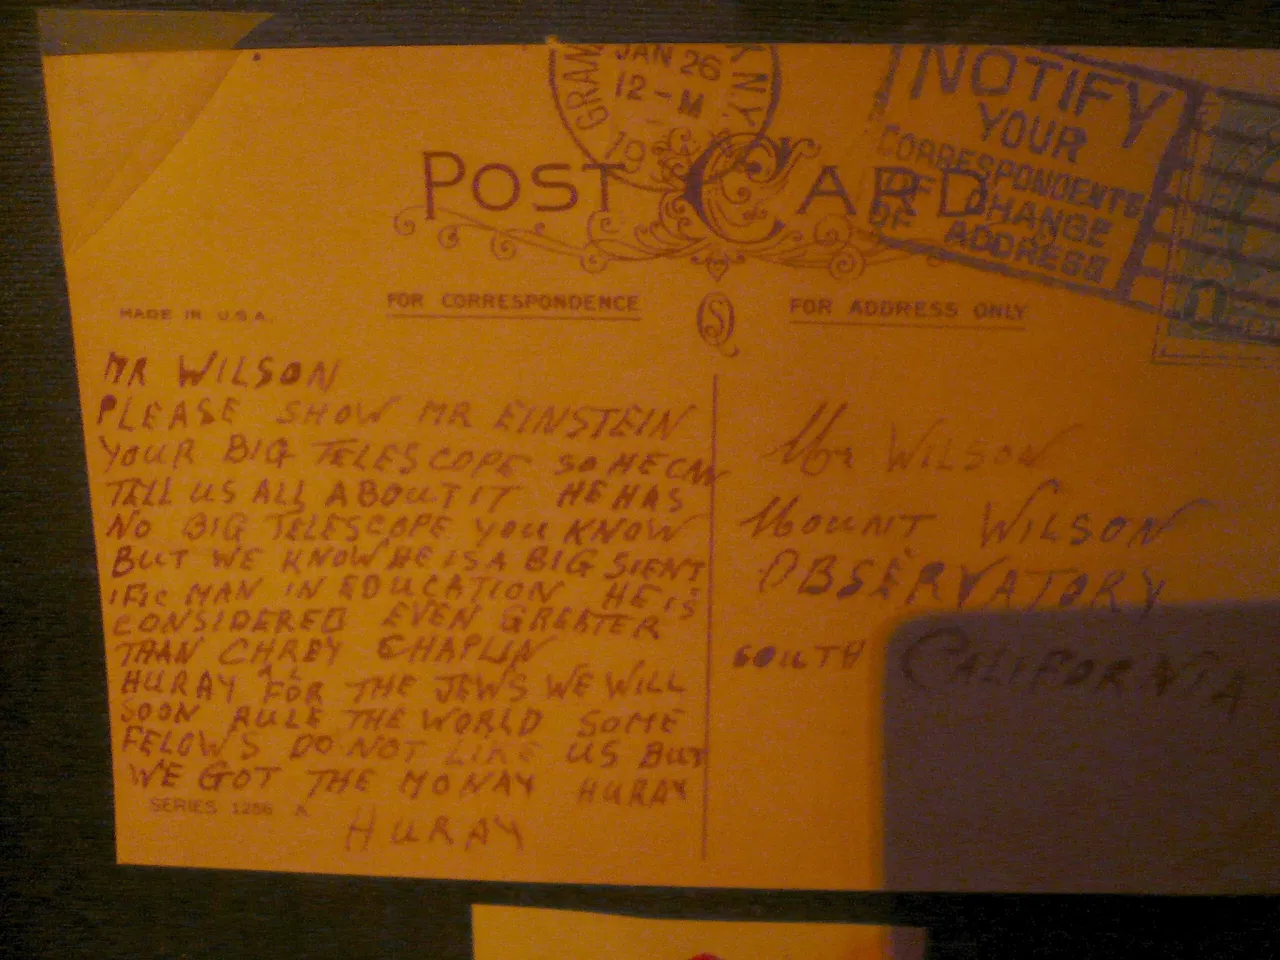 JAN 26
12-M
19
NOTIFY
YOUR
CORRESPONDENTS
OF CHANGE
OF ADDRESS
POST CARD
MADE IN U.S.A.
FOR CORRESPONDENCE
FOR ADDRESS ONLY
MR WILSON
PLEASE SHOW MR EINSTEIN
YOUR BIG TELESCOPE SO HE CAN
TELL US ALL ABOUT IT HE HAS
NO BIG TELESCOPE YOU KNOW
BUT WE KNOW HE IS A BIG SIENT
IFIC MAN IN EDUCATION HE IS
CONSIDERED EVEN GREATER
THAN CHRLEY CHAPLIN
HURAY FOR THE JEWS WE WILL
SOON RULE THE WORLD SOME
FELOWS DO NOT LIKE US BUT
WE GOT THE MONAY HURAY
HURAY
SERIES 1256 A
Mr WILSON
MOUNT WILSON
OBSERVATORY
SOUTH CALIFORNIA